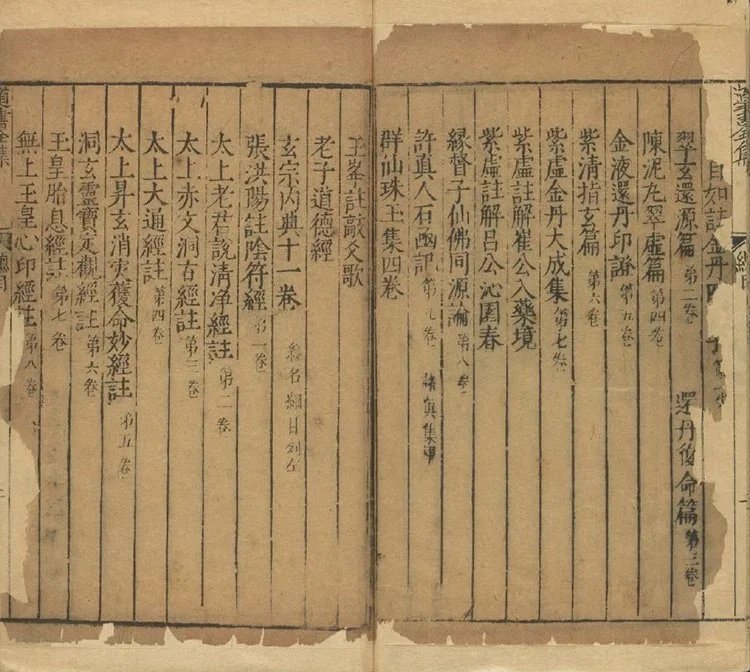 道書全集 總目
自如註金丹
翠玄還源篇 第二卷 還丹復命篇 第三卷
陳泥丸翠虛篇 第四卷
金液還丹印證 第五卷
紫清指玄篇 第六卷
紫虛金丹大成集 第七卷
紫虛註解崔公入藥境
紫虛註解呂公沁園春
緣督子仙佛同源論 第八卷
許真人石函記 第九卷 諸真集
群仙珠玉集四卷
王峯註敲爻歌
老子道德經
玄宗內典十一卷 經名細目列左
張洪陽註陰符經 第一卷
太上老君說清净經註 第二卷
太上赤文洞古經註 第三卷
太上大通經註 第四卷
太上昇玄消灾獲命妙經註 第五卷
洞玄靈寶定觀經註 第六卷
王皇胎息經註 第七卷
無上王皇心印經註 第八卷
道書全集 總目